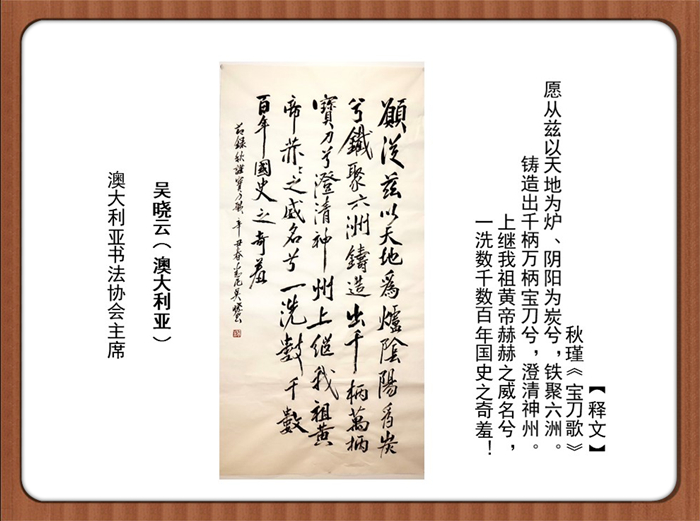 【释文】
秋瑾《宝刀歌》
愿从兹以天地为炉、阴阳为炭兮，铁聚六洲。
铸造出千柄万柄宝刀兮，澄清神州。
上继我祖黄帝赫赫之威名兮，
一洗数千数百年国史之奇羞！
願從兹以天地爲爐陰陽爲炭
兮鐵聚六洲鑄造出千柄萬柄
寶刀兮澄清神州上繼我祖黄
帝赫々之威名兮一洗數千數
百年國史之奇羞
節録秋瑾寶刀歌 辛丑春
吴晓云（澳大利亚）
澳大利亚书法协会主席